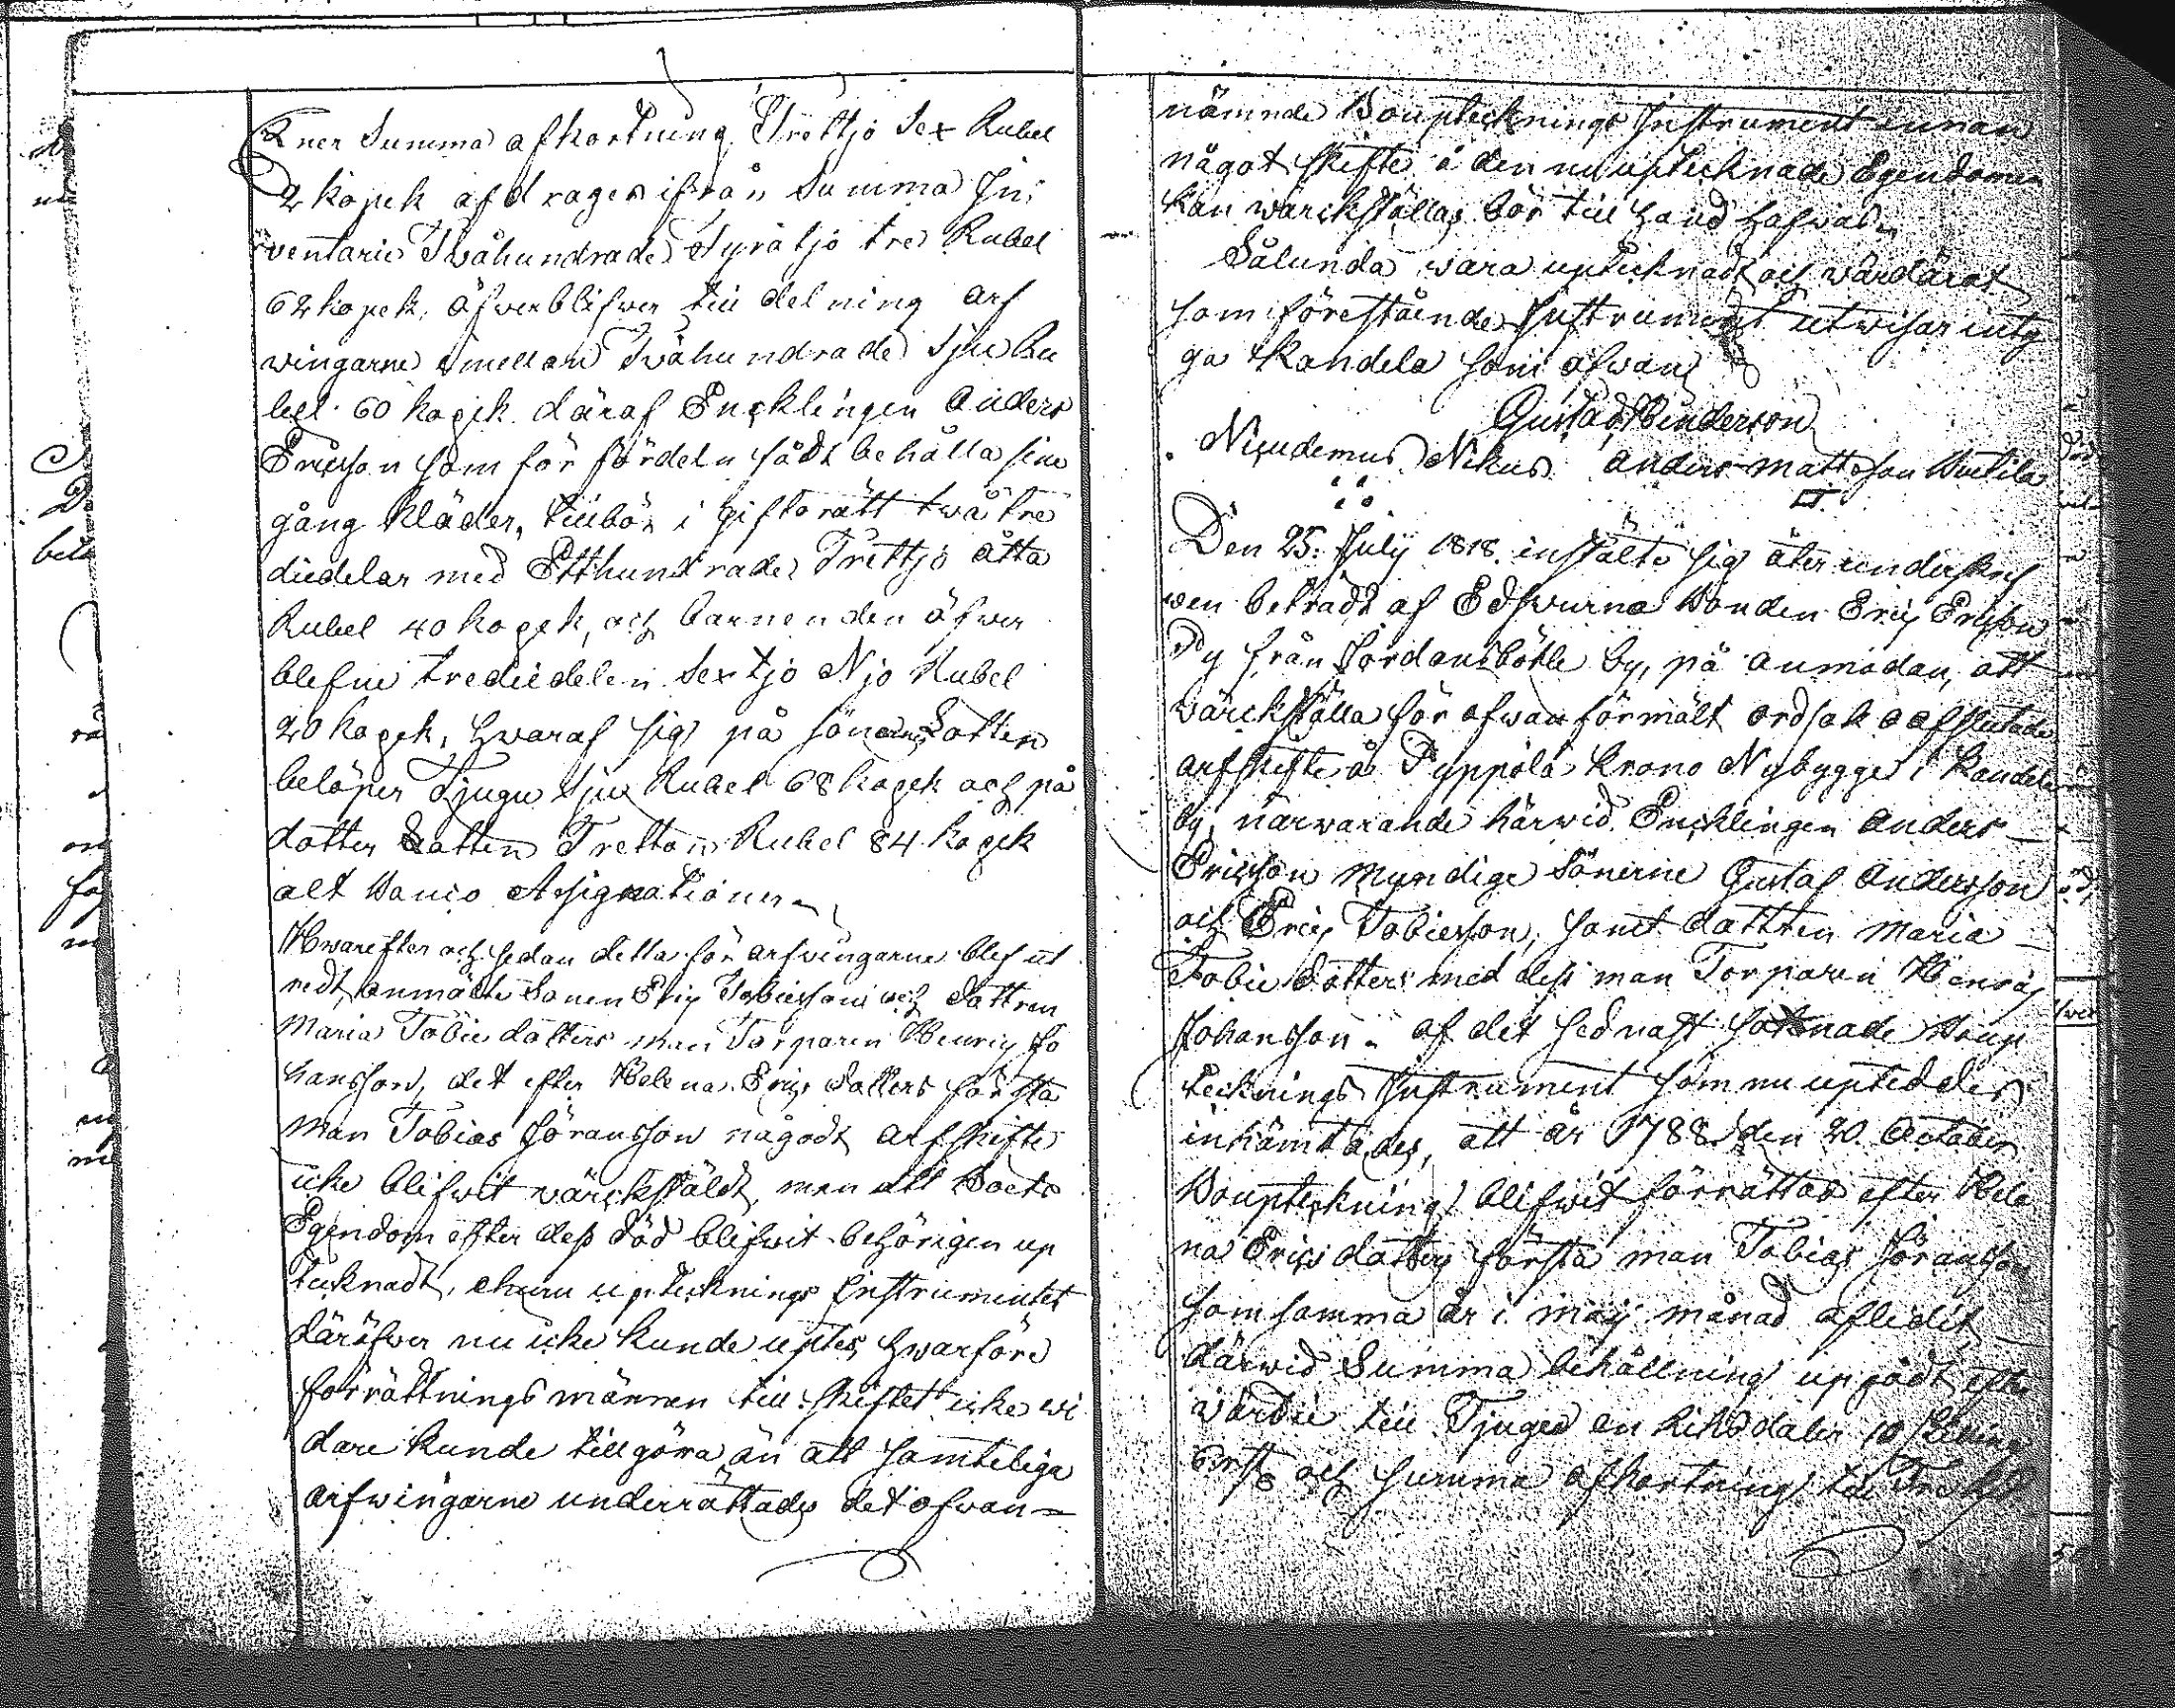 Äner Summa afkortning Trettjo Sex Rubel
2 kopek afdrages ifrån Summa In:
ventarie Twåhundrade Fyratjo tre Rubel
62 kopek, öfwerblifwer till delning arf
wingarne emellan Twåhundrade Sju Ru
bel 60 kopek däraf Encklingen Anders
Ericsson som för fördeln fådt behålla sine
gång kläder, tillbör i giftorätt twå tre
diedelar med Etthundrade Trettjo åtta
Rubel 40 kopek, och barnen den öfwer
blefne trediedelen Sextjo Njo Rubel
20 kopek, hwaraf sig på sönernes Lotter
belöper Tjugu sju Rubel 68 kopek och på
dotter Lotten Tretton Rubel 84 kopek
alt Banco Assignationer
Hwarefter och sedan detta för arfwingarne blef ut
redt, anmälte Sonen Eric Tobiesson och dottren
Maria Tobiedotters man Torparen Henric Jo
hansson, det efter Helena Erics dotters första
man Tobias Göransson någodt arfskifte
icke blifwit wärckstäldt, men att Boets
Egendom efter dess död blifwit behörigen up
tecknadt, ehuru uptecknings Instrumentet
däröfwer nu icke kunde uptes, hwarföre
förrättnings männen till skiftet icke wi
dare kunde tillgöra än att samteliga
arfwingarne underrättades det ofwan=
nämnde Bouptecknings Instrument innan
något skifte å den nu uptecknade Egendomen
kan wärckställas bör till hand hafwas
Sålunda wara uptecknadt och wärdärat
som förestående Instrument utwisar intyg
ga Kandela som ofwan
Gustaf Anderson
Nicudemus Nikus. Anders Mattsson
Den 25. July 1818. instälte sig åter underskref
wen beträdt af Edswurna Bonden Eric Ericsson
Py från Jordansböle by, på anmodan, att
wärckställa för ofwan förmält ordsak oafslutade
arfskifte å Pyppölä krono Nybygge i Kandela
by, närwarande härwid Encklingen Anders
Ericsson myndige Sönerne Gustaf Andersson
och Eric Tobiesson, samt dottren Maria
Tobie dotter med dess man Torparen Henric
Johansson. af det sednast saknade Boup
tecknings Instrument som nu upteddes
inhämtades, att år 1788 den 20. October
Bouptekning blifwit förrättad efter Hele
na Erics dotters första man Tobias Göransson
som samma år i may månad aflidit,
därwid Summa behållning upgådt efter
wärdie till Tjugu en Riksdaler 10 skilling
och Summa afkortning till